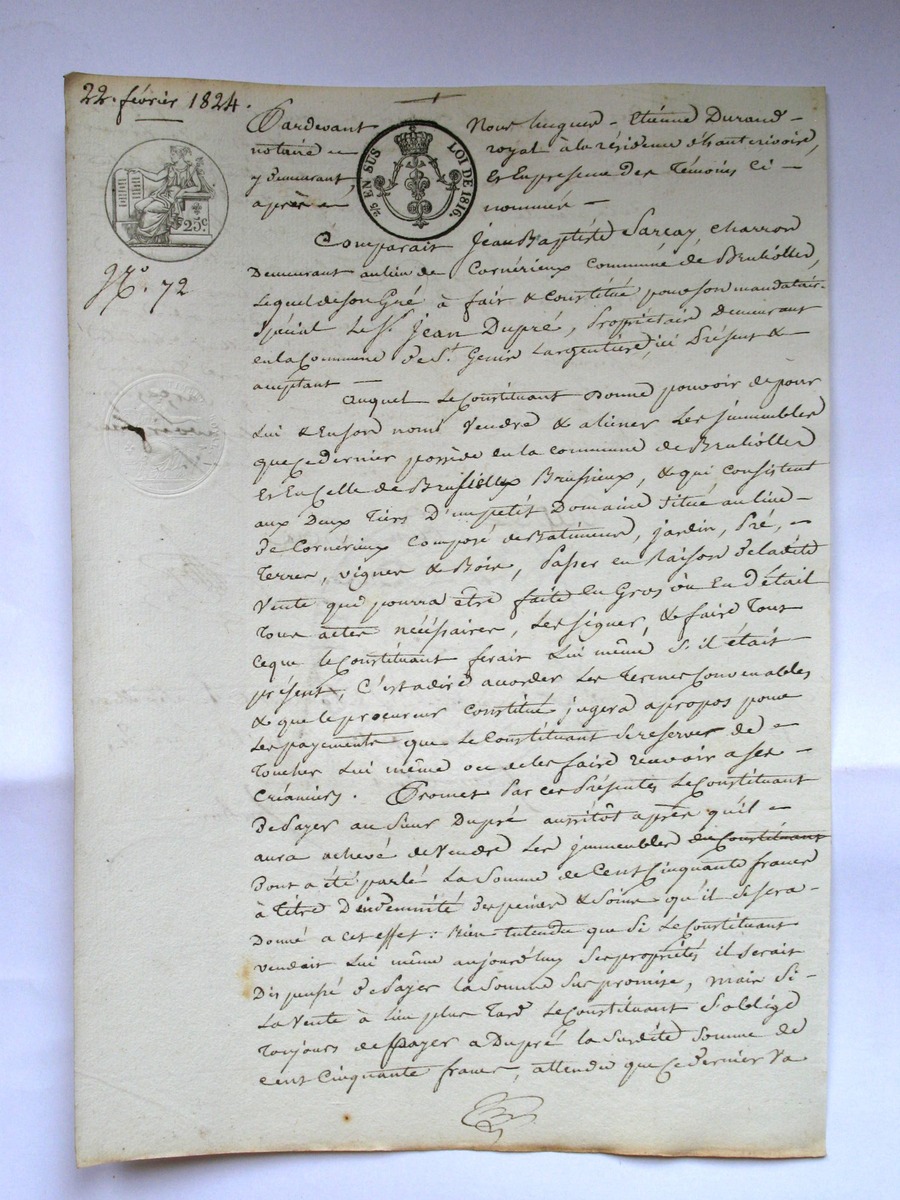 22. février 1824.
Pardevant Nous Hugues - Etiénne Durand -
notaire - royal a la résidence d'hauterivoire,
y demeurant, Et En presence Des Témoins Ci -
après - nommés -
5/2 EN SUS LOI DE 1816
25c
N.º 72
Comparait Jean Baptisté Sarcay, charron
Demeurant au lieu de Cornérieux Commune de Brulliolles,
Lequel de son Gré à fait & Constitué pour son mandataire
Spécial Le S.r Jean Dupré, Propriétaire demeurant
en la Commune de S.t Genis Largentière, ici Présent &
acceptant -
Auquel Le Constituant Donne pouvoir de pour
Lui & En son nom Vendre & aliéner Les jmmeubles
que Ce dernier possède en la commune de Brulliolles
Et En Celle de Brussieux, & qui consistent
aux Deux Tiers D'un petit Domaine situé au lieu -
De Cornérieux Composé de Batimens, jardin, Pré, -
Terres, vignes & Bois, Passer en Raison de la dite
Vente qui pourra être faite En Gros ou En détail
Tous actes nécéssaires, Les signer, & faire Tout
Ce que le Constituant ferait Lui même s'il était
présent, C'est a dire accorder Les Termes Convenables
& que le procureur Constitué jugera apropos pour
Les payements que Le Constituant se reserve de -
Toucher Lui même ou de les faire recevoir a ses -
Créanciers. Promet Par ces Présentes Le Constituant
De Payer au Sieur Dupré aussitôt après qu'il -
aura achevé de Vendre Les jmmeubles du Constituant
Dont a été parlé La Somme de Cent Cinquante francs
à Titre D'indemnité Des peines & Soins qu'il se sera -
Donné a cet effet: Bien Entendu que Si Le Constituant
vendait Lui même aujourd'huy Ses propriétés il serait
Dispensé De Payer la Somme Sus promise, mais Si -
La Vente à lieu plus Tard Le Constituant S'obligé
Toujours de Payer a Dupré la Susdité Somme de
Cent Cinquante francs, attendu que Ce Dernier Va